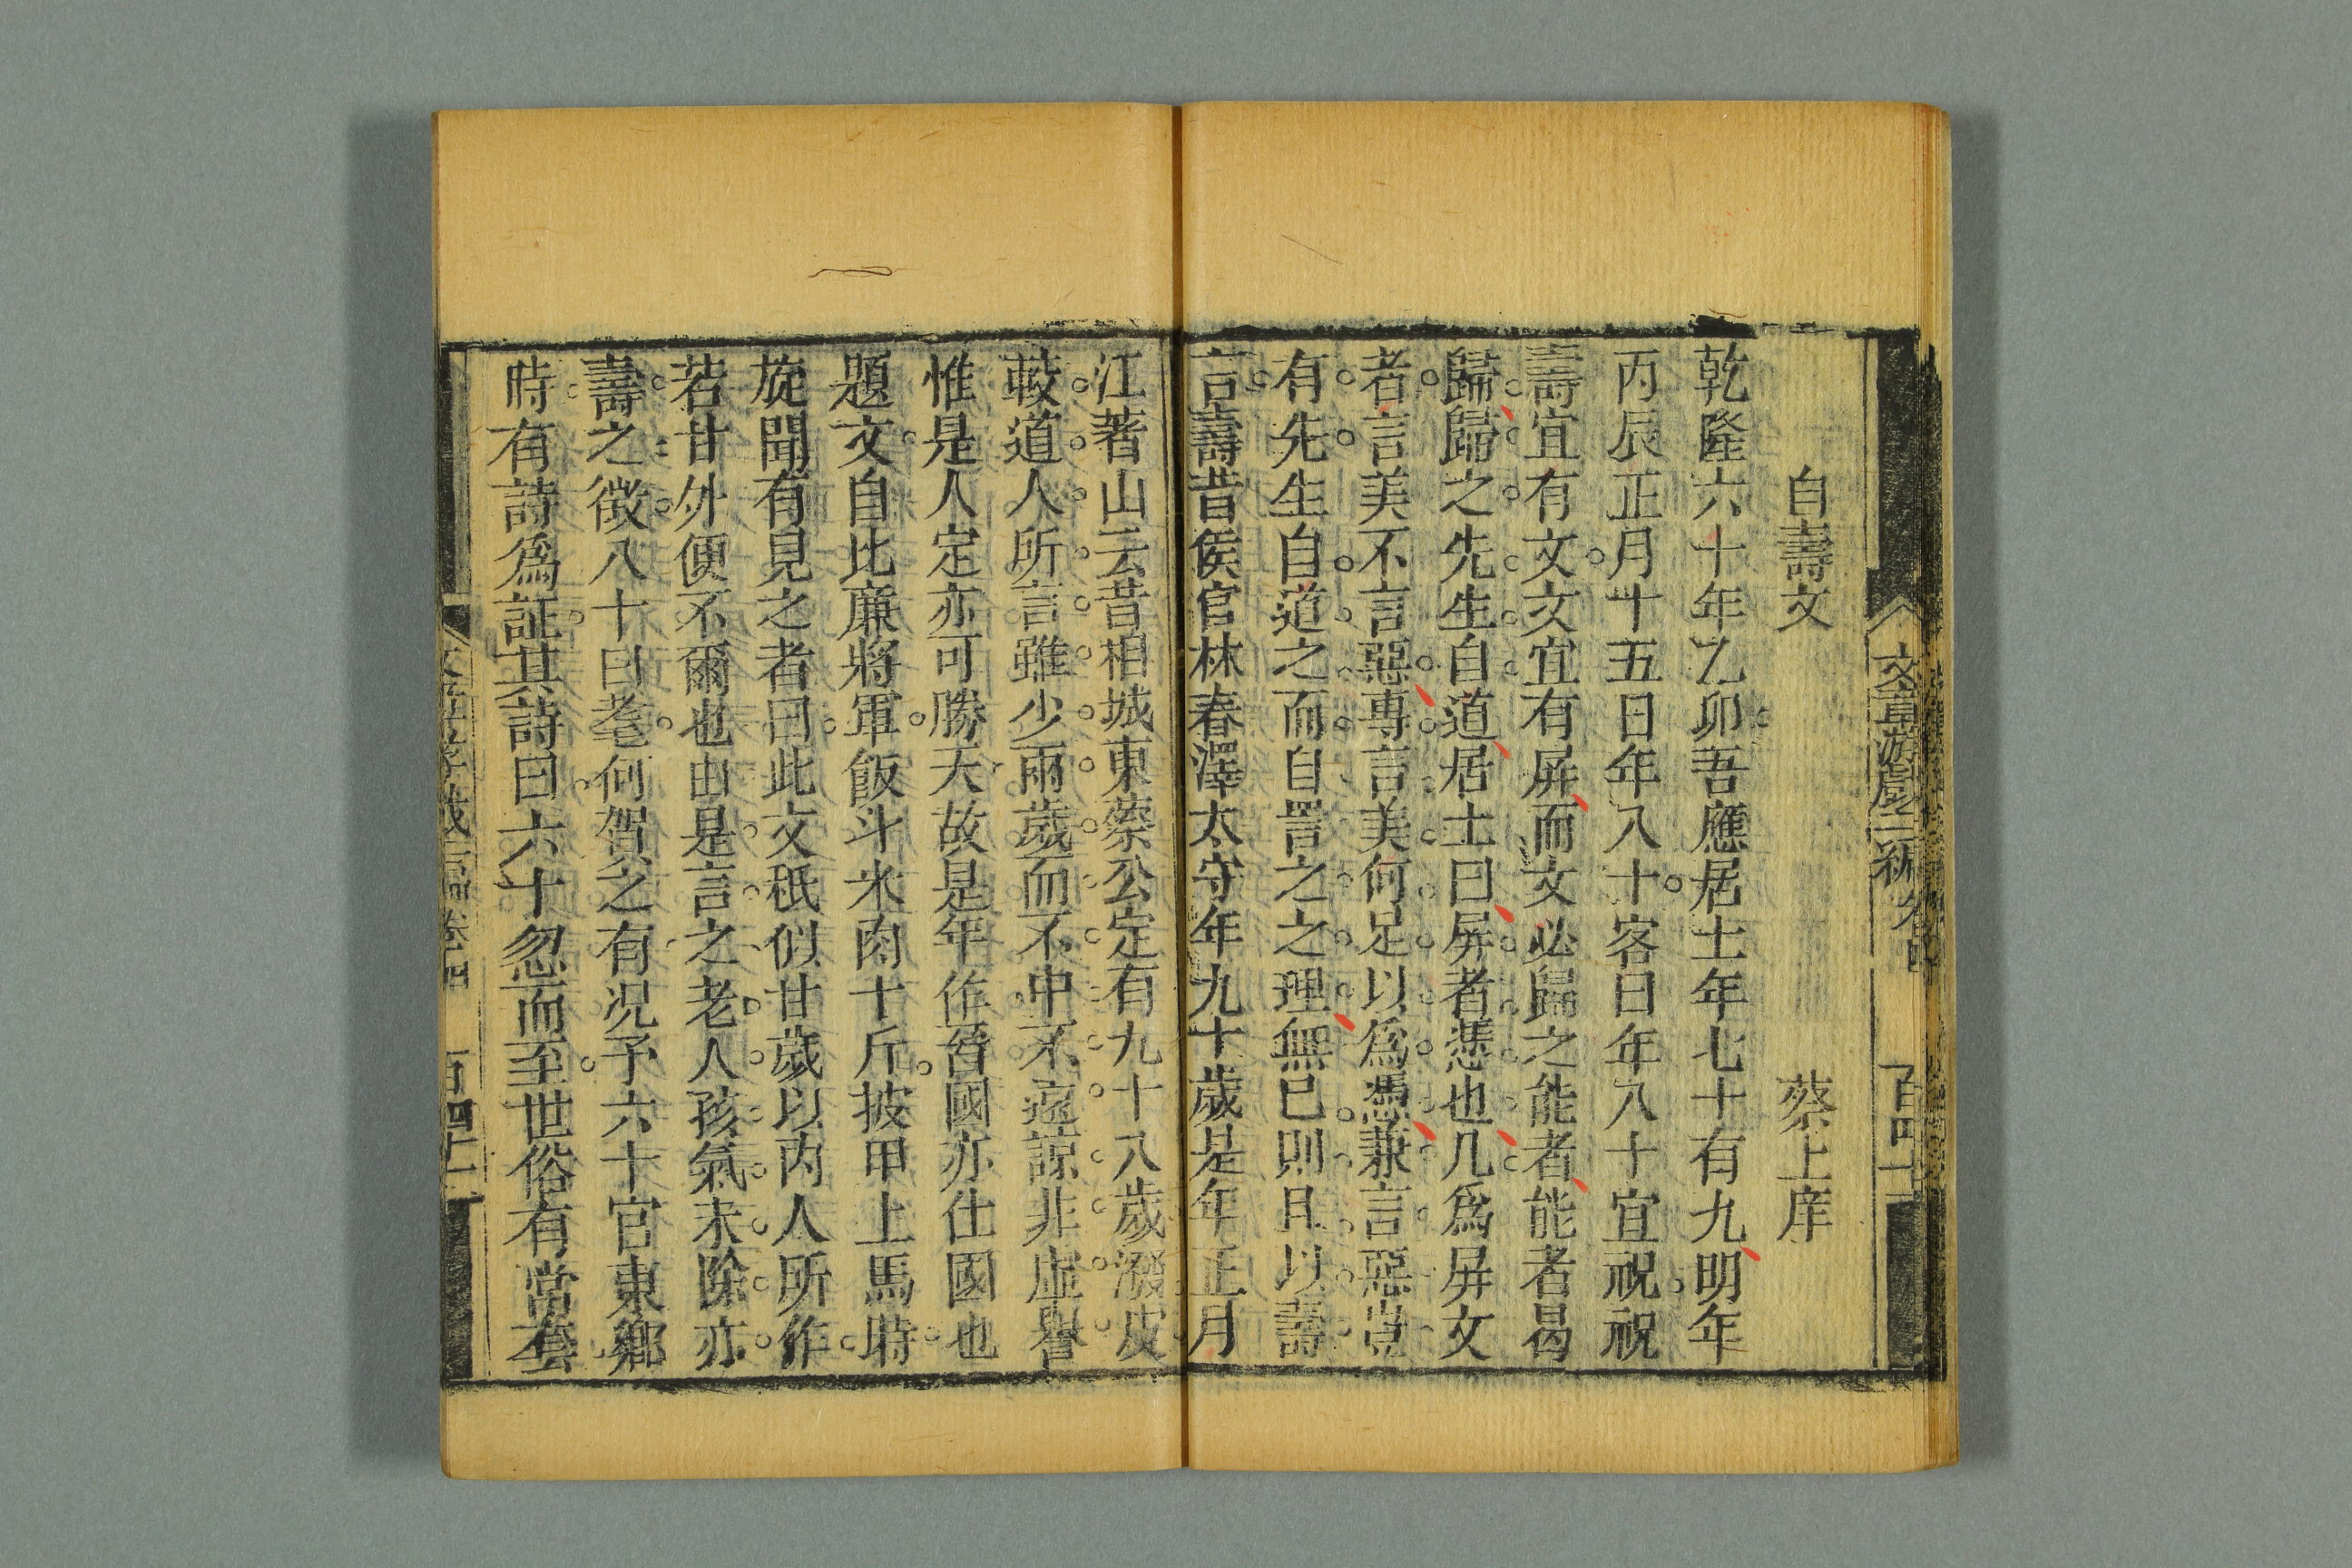 文章游戲二編 卷四 百四十一
自壽文 蔡上庠
乾隆六十年乙卯吾應居士年七十有九明年
丙辰正月十五日年八十客曰年八十宜祝祝
壽宜有文文宜有屏而文必歸之能者能者曷
歸歸之先生自道居士曰屏者慿也几爲屏文
者言美不言惡專言美何足以爲憑兼言惡豈
有先生自道之而自詈之之理無已則且以壽
言壽昔侯官林春澤太守年九十歲是年正月
江著山云昔相城東蔡公定有九十八歲潑皮
較道人所言雖少兩歲而不中不遠諒非虛譽
惟是人定亦可勝天故是年作晉國亦仕國也
題文自比廉將軍飯斗米肉十斤披甲上馬時
旋聞有見之者曰此文秖似廿歲以內人所作
若廿外便不爾也由是言之老人孩氣未除亦
壽之徵八十曰耄何賀之有况予六十官東鄉
時有詩爲証其詩曰六十忽而至世俗有常套
二編卷四 百四十一